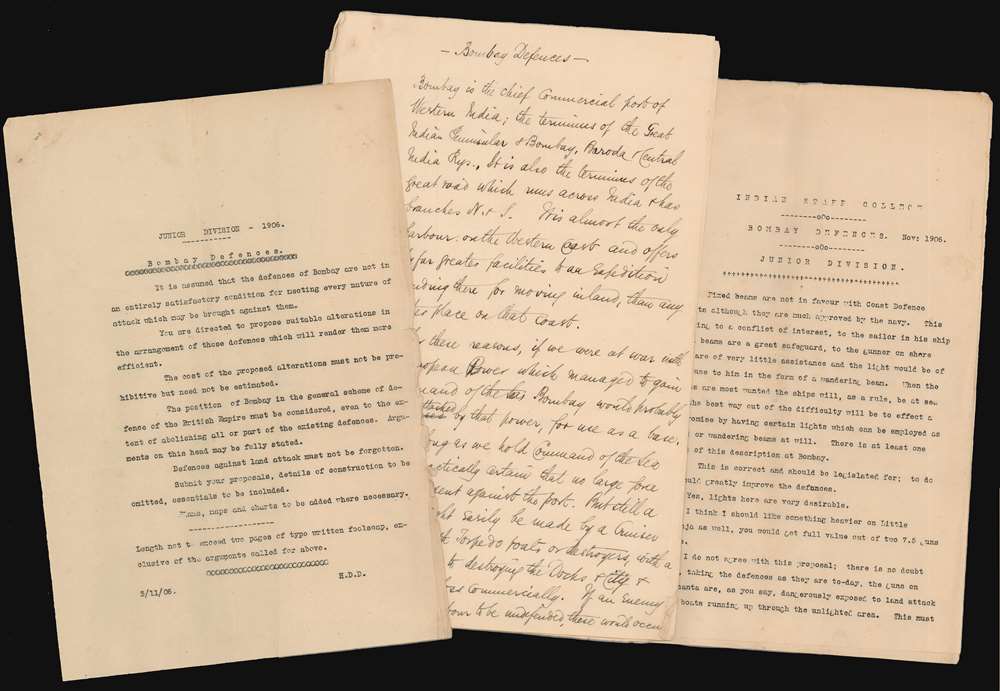 JUNIOR DIVISION - 1906.
Bombay Defences.
It is assumed that the defences of Bombay are not in
an entirely satisfactory condition for meeting every nature of
attack which may be brought against them.
You are directed to propose suitable alterations in
the arrangement of those defences which will render them more
efficient.
The cost of the proposed alterations must not be pro-
hibitive but need not be estimated.
The position of Bombay in the general scheme of de-
fence of the British Empire must be considered, even to the ex-
tent of abolishing all or part of the existing defences. Argu-
ments on this head may be fully stated.
Defences against land attack must not be forgotten.
Submit your proposals, details of construction to be
omitted, essentials to be included.
Plans, maps and charts to be added where necessary.
Length not to exceed two pages of type written foolscap, ex-
clusive of the arguments called for above.
H.D.D.
5/11/06.
- Bombay Defences -
Bombay is the chief Commercial port of
Western India; the terminus of the Great
Indian Peninsular & Bombay, Baroda & Central
India Rys., It is also the terminus of the
great road which runs across India & has
branches N. & S. It is almost the only
harbour on the Western Coast and offers
far greater facilities to an Expedition
landing there for moving inland, than any
place on that coast.
these reasons, if we were at war with
Power which managed to gain
Command of the Bombay would probably
by that power, for use as a base.
long as we hold Command of the Sea
practically certain that no large force
sent against the port. But still a
might easily be made by a Cruiser
Torpedo boats or destroyers, with a
to destroying the Docks & City &
Commercially. If an Enemy
to be undefended, there would occur
INDIAN STAFF COLLEGE
--------oOo--------
BOMBAY DEFENCES. Nov: 1906.
--------oOo--------
JUNIOR DIVISION.
Fixed beams are not in favour with Coast Defence
although they are much approved by the navy. This
to a conflict of interest, to the sailor in his ship
beams are a great safeguard, to the gunner on shore
are of very little assistance and the light would be of
use to him in the form of a wandering beam. When the
are most wanted the ships will, as a rule, be at sea.
the best way out of the difficulty will be to effect a
compromise by having certain lights which can be employed as
or wandering beams at will. There is at least one
of this description at Bombay.
This is correct and should be legislated for; to do
would greatly improve the defences.
Yes, lights here are very desirable.
I think I should like something heavier on Little
as well, you would get full value out of two 7.5 guns
I do not agree with this proposal; there is no doubt
taking the defences as they are to-day, the guns on
are, as you say, dangerously exposed to land attack
boats running up through the unlighted area. This must